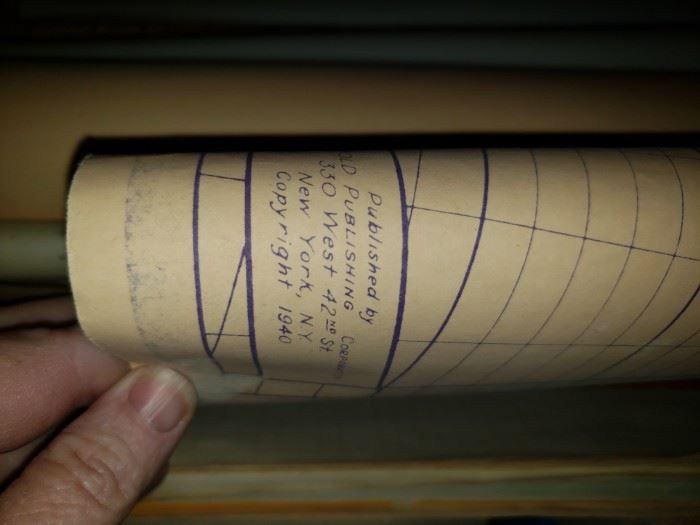 Published by
OLD PUBLISHING CORPORATI
330 West 42ND St
New York, NY
Copyright 1940